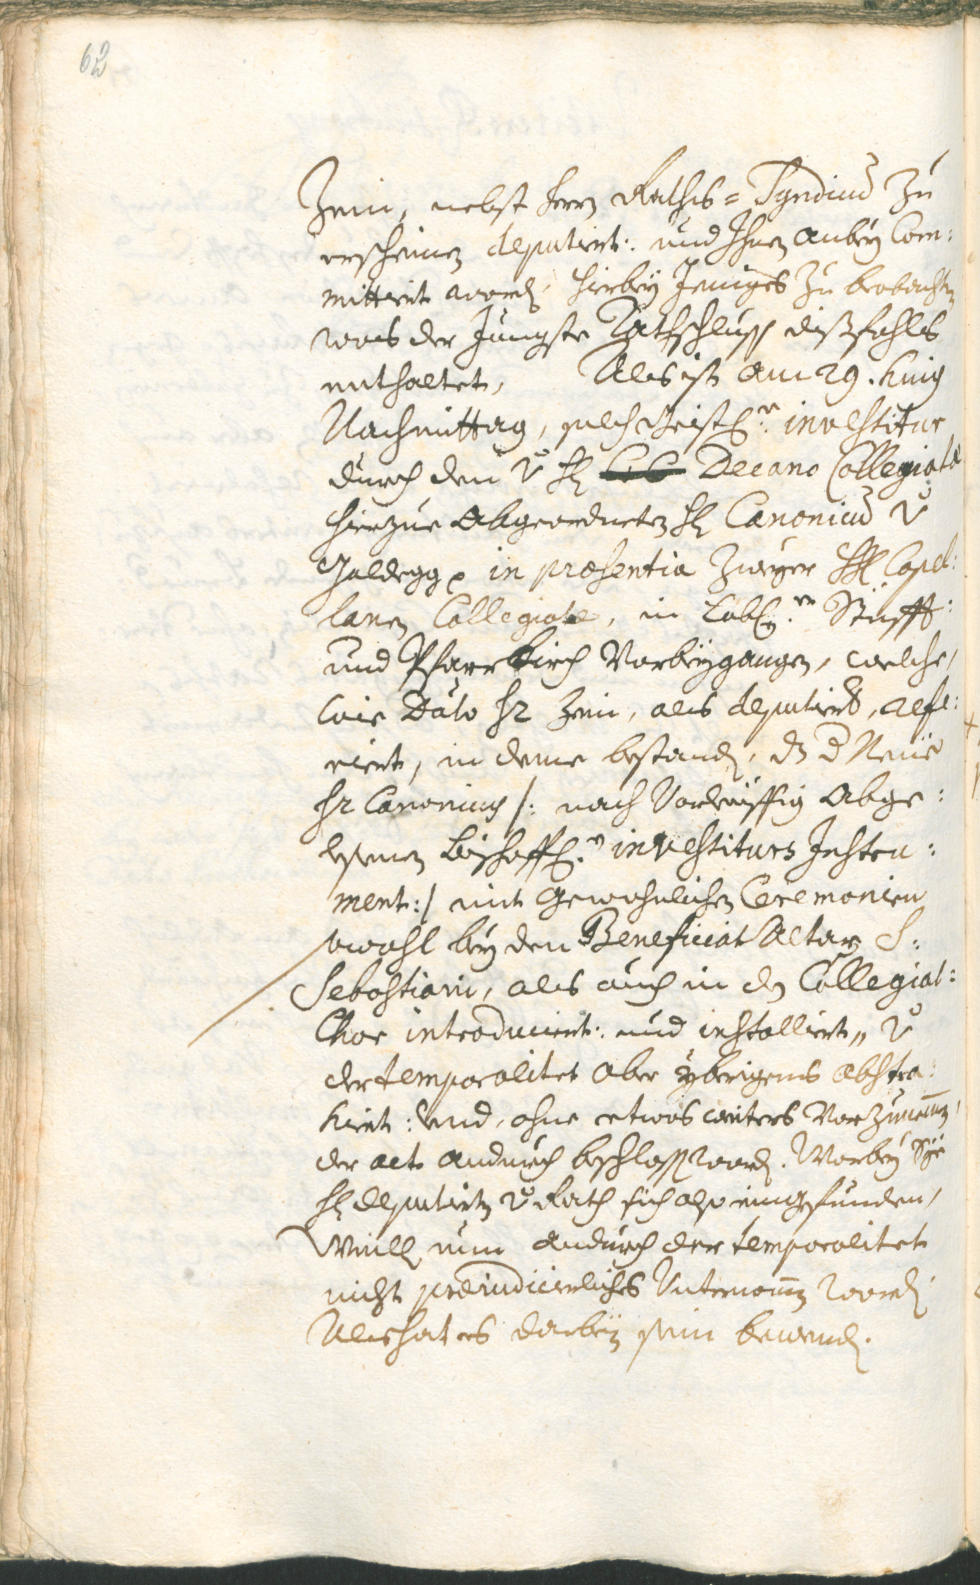 62
Zein, nebst Herrn Raths=Syndicus zu
erscheinen deputiert: und Ihnen anbey Com:
mittiert word. hierbey Jeniges zu beobachten
was der Jüngste Rathschluss dißfahls
enthaltet, Als ist am 29. huig
Nachmittag, solch Geistl. investitur
durch den v H. Decano Collegiatæ
hierzue Abgeordneten H. Canonicus v
Haldegg in præsentia zweyer HH. Capel:
lanen Collegiatæ, in Lobl. Stifft:
und Pfarrkirch Vorbeygangen, welche,
wie Dato Hr Zein, als deputierter, refe:
riert, in deme bestand, dz d Neüe
Hr Canonicus /: nach Vorläuffig Abge:
lesenen Bischoffl. investiturs Instru:
ment :/ mit Gewohnlichen Ceremonien
sowohl bey den Beneficiat Altar S:
Sebastiani, als auch in den Collegiat:
Chor introduciert: und installiert, v
der temporalitet aber ybrigens abstra:
hiert: und, ohne etwas weiters Vorzunemen,
der act andurch beschlossen word. Worbey Sye
H. deputierte v Rath sich also eingefunden,
Weill nun andurch der temporalitet
nicht præiudicierliches Unternomen word
Als hat es darbey sein bewend.